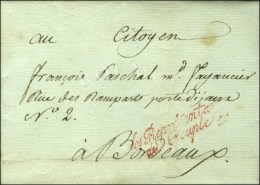 au Citoyen
françois Paschal md. fayancier
Rue des Remparts porte dijeaux
N.o 2.
à Bordeaux.